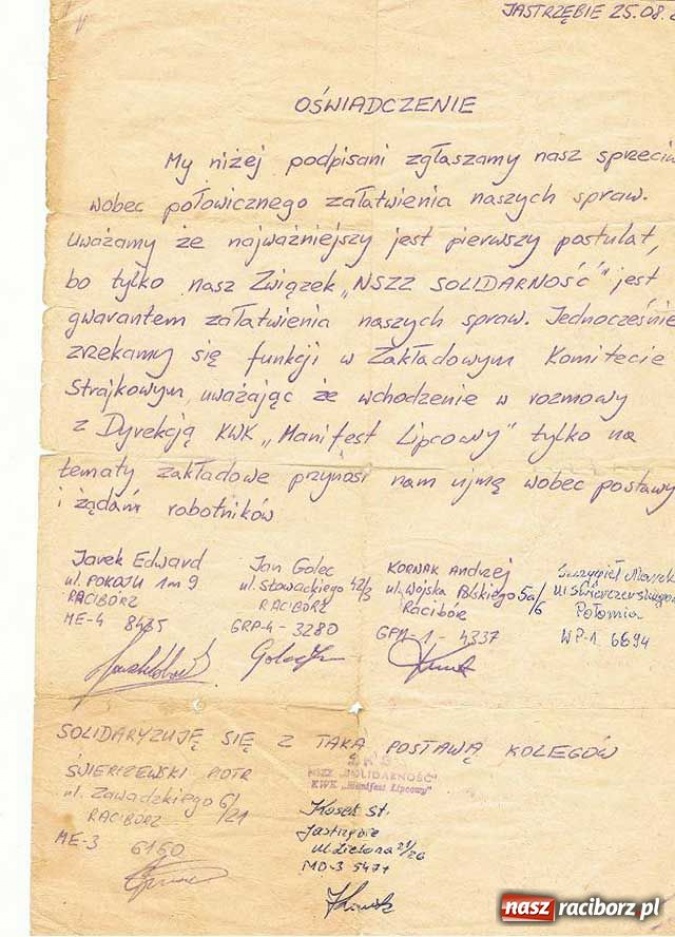 JASTRZĘBIE 25.08.
OŚWIADCZENIE
My niżej podpisani zgłaszamy nasz sprzeciw
wobec połowicznego załatwienia naszych spraw.
Uważamy że najważniejszy jest pierwszy postulat,
bo tylko nasz Związek „NSZZ SOLIDARNOŚĆ" jest
gwarantem załatwienia naszych spraw. Jednocześnie
zrzekamy się funkcji w Zakładowym Komitecie
Strajkowym, uważając że wchodzenie w rozmowy
z Dyrekcją KWK „Manifest Lipcowy" tylko na
tematy zakładowe przynosi nam ujmę wobec postawy
i żądań robotników
Jarek Edward
ul. POKOJU 1m9
RACIBÓRZ
ME-4 8485
Jan Golec
ul. Słowackiego 42/3
RACIBÓRZ
GRP-4-3280
KORNAK Andrzej
ul. Wojska Polskiego 5a/6
Racibórz
GPM-1-4337
Marek
ul. Świerczewskiego
Połomia
WP-1 6694
SOLIDARYZUJĘ SIĘ Z TAKĄ POSTAWĄ KOLEGÓW
ŚWIERCZEWSKI PIOTR
ul. Zawadzkiego 6/21
RACIBÓRZ
ME-3 6160
NSZZ „SOLIDARNOŚĆ"
KWK „Manifest Lipcowy"
Kosek St.
Jastrzębie
ul. Zielona 21/26
MD-3 5471
nasz raciborz.pl